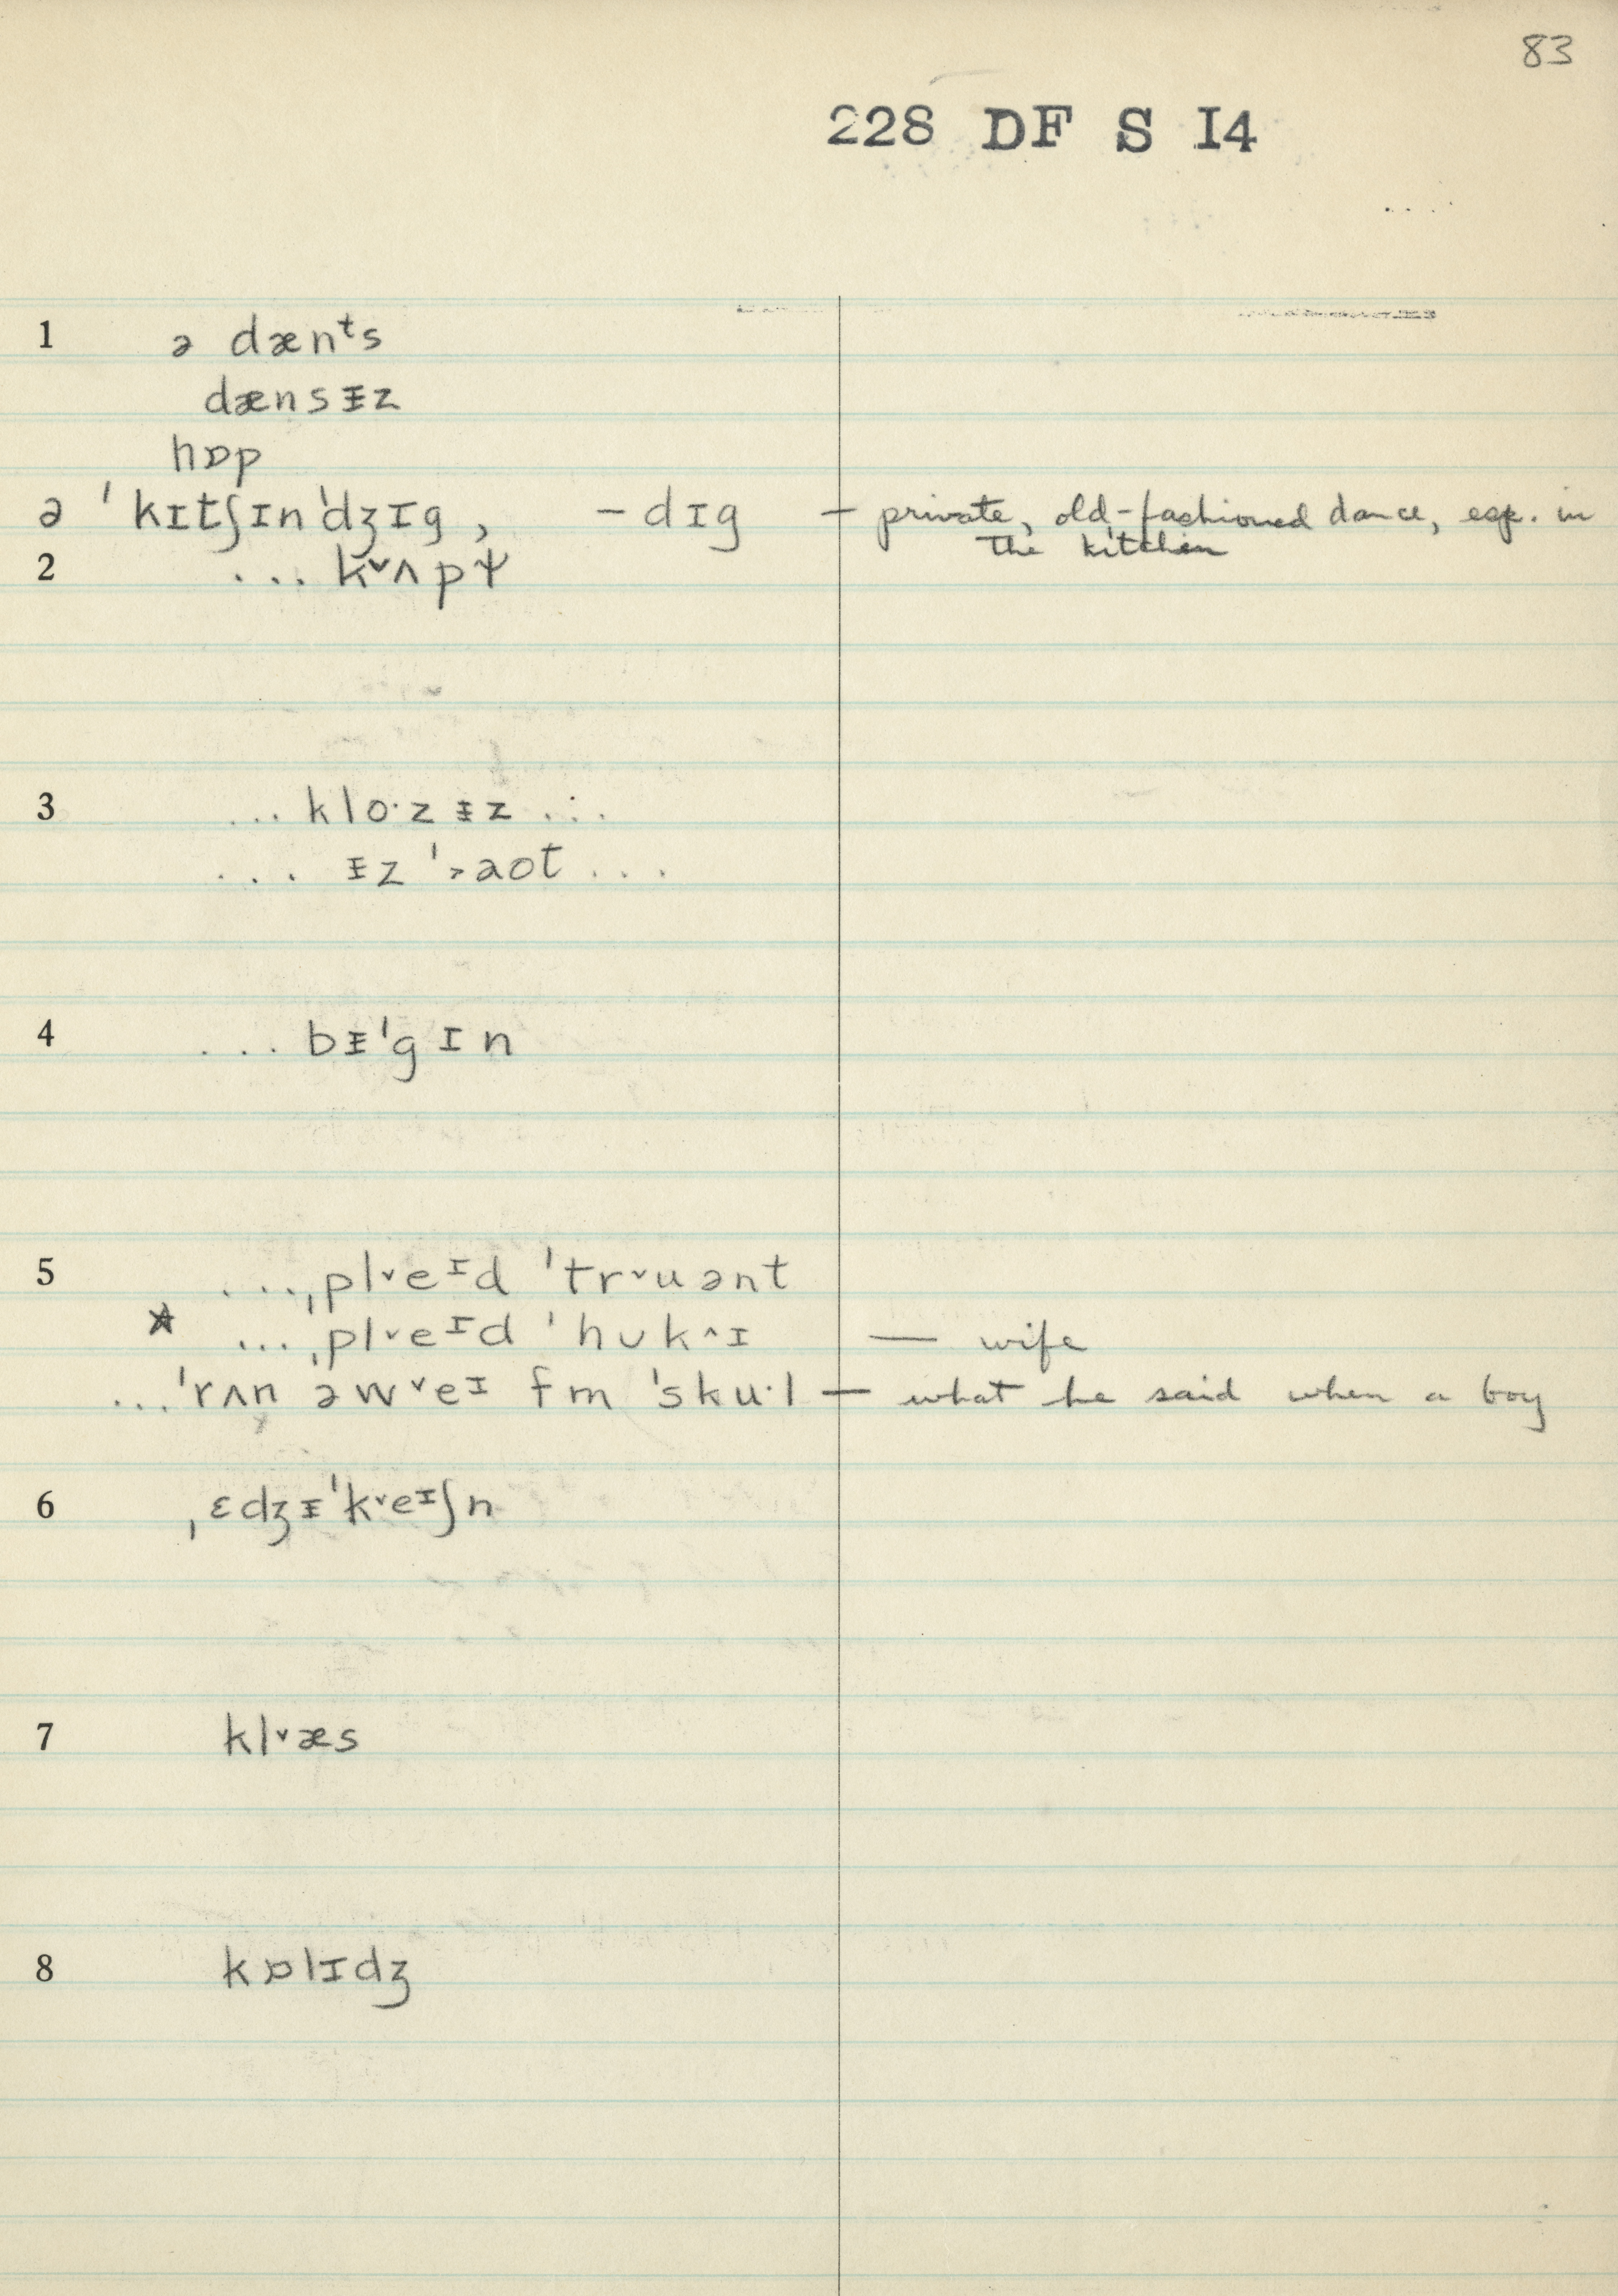 83
228 DF S I4
1 ə dænᵗs
dænsᵻz
hɒp
ə ˈkɪtʃɪnˈdʒɪg, -dɪg — private, old-fashioned dance, esp. in
the kitchen
2 ... k˅ʌpɫ
3 ... kloˑzᵻz ...
... ᵻz ˈ˃aot ...
4 ... bᵻˈgɪn
5 ...ˌpl˅eᶦd ˈtr˅uənt
☆ ...ˌpl˅eᶦd ˈhʊk^ɪ — wife
...ˈrʌn əw˅eᶦ fm ˈskuˑl — what he said when a boy
6 ˌɛdʒᵻˈk˅eᶦʃn
7 kl˅æs
8 kɒlɪdʒ